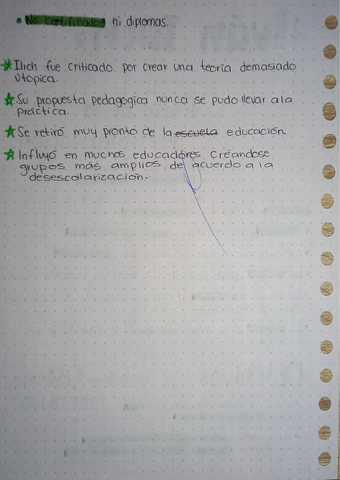 • No certificados ni diplomas.
★ Ilich fue criticado por crear una teoria demasiado
utopica.
★ Su propuesta pedagogica nunca se pudo llevar a la
práctica.
★ Se retiró muy pronto de la escuela educación.
★ Influyó en muchos educadores creandose
grupos más amplios de acuerdo a la
desescolarización.